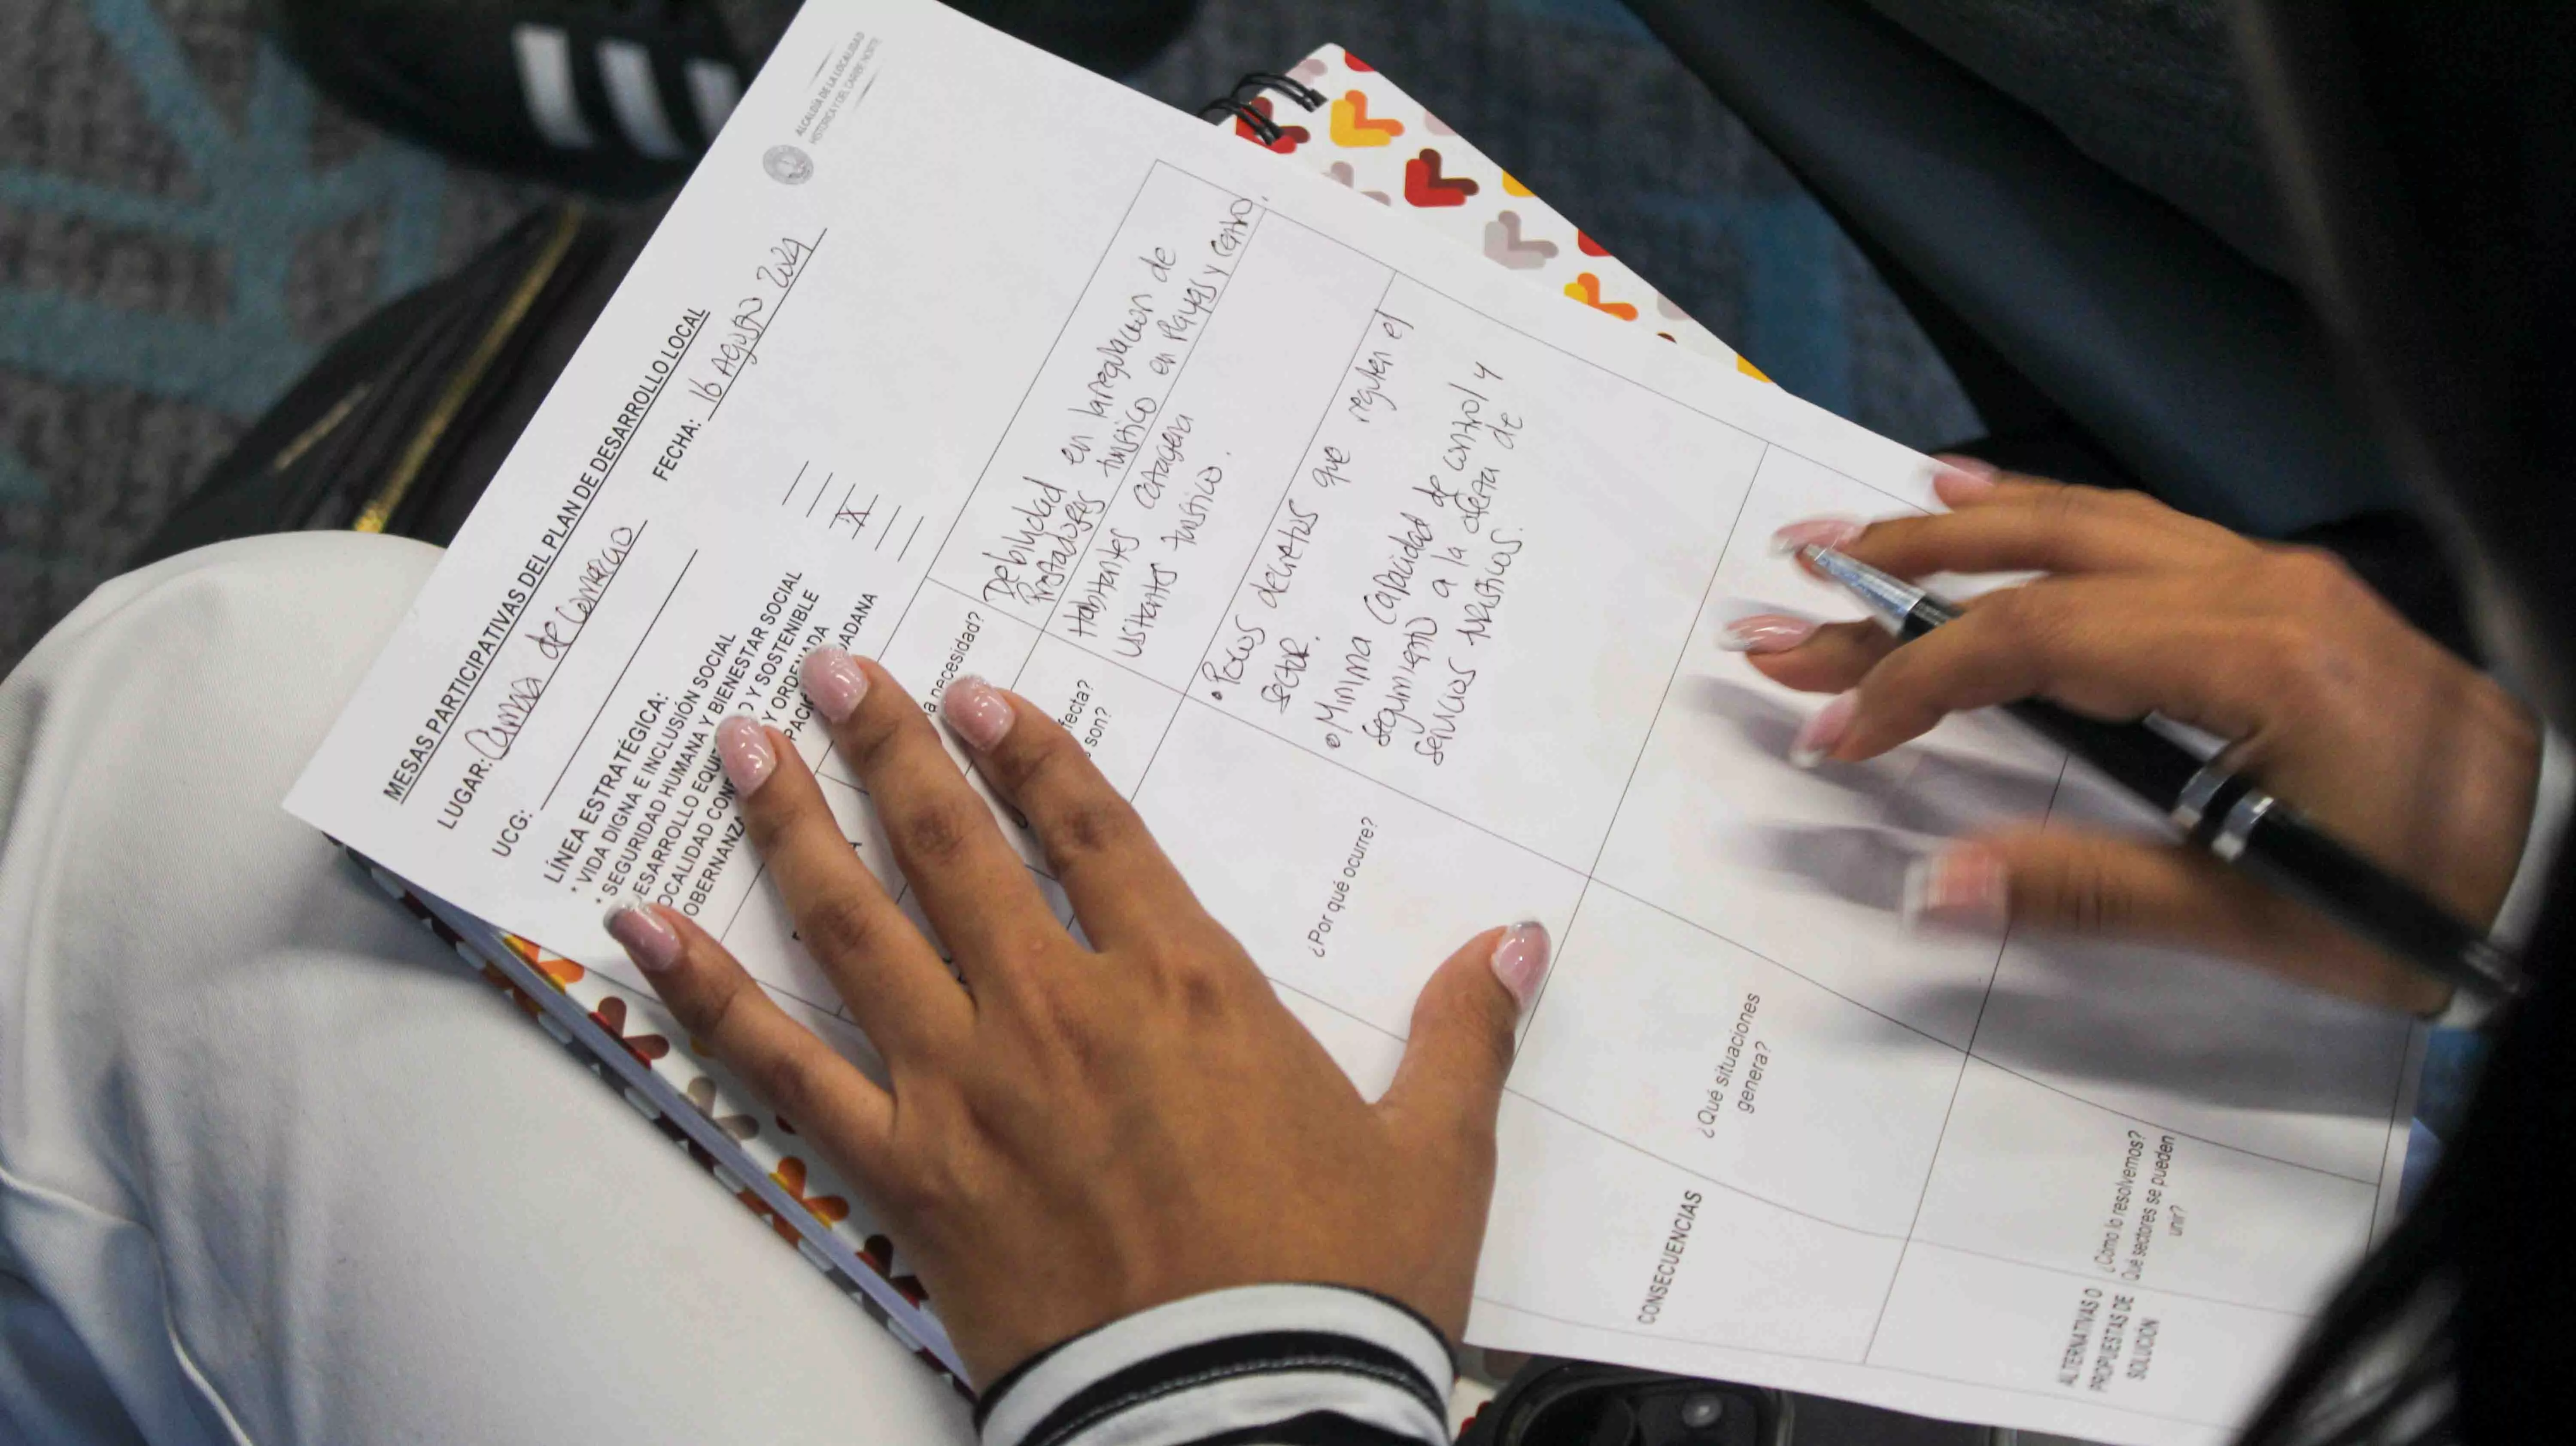 ALCALDÍA DE LA LOCALIDAD
HISTÓRICA Y DEL CARIBE NORTE
MESAS PARTICIPATIVAS DEL PLAN DE DESARROLLO LOCAL
LUGAR: Camara de Comercio FECHA: 16 Agosto 2024
UCG:
LÍNEA ESTRATÉGICA:
* VIDA DIGNA E INCLUSIÓN SOCIAL
* SEGURIDAD HUMANA Y BIENESTAR SOCIAL
DESARROLLO EQUI O Y SOSTENIBLE X
OCALIDAD CON Y ORDENADA
OBERNANZA PACI DADANA
a necesidad?
Debilidad en la regulacion de
Prestadores turistico en Playas y Centro.
fecta?
son?
Habitantes Cartagena
visitantes turistico.
¿Por qué ocurre?
• Pocos decretos que regulen el
sector.
• Minima Capacidad de control y
seguimiento a la oferta de
servicios turisticos.
CONSECUENCIAS
¿Qué situaciones
genera?
ALTERNATIVAS O
PROPUESTAS DE
SOLUCION
¿Cómo lo resolvemos?
Qué sectores se pueden
unir?